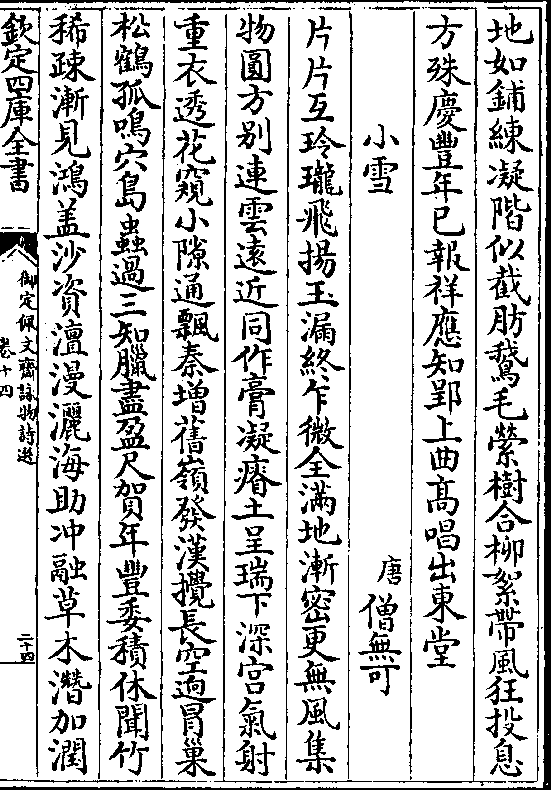 地如鋪練凝階似截肪鵝毛縈樹合柳絮帶風狂投息
方殊慶豐年已報祥應知郢上曲髙唱出東堂
小雪
唐僧無可
片片互玲瓏飛揚玉漏終乍微全滿地漸密更無風集
物圓方别連雲遠近同作膏凝瘠土呈瑞下深宫氣射
重衣透花窺小隙通飄秦增舊嶺發漢攪長空逈冒巢
松鶴孤鳴穴島蟲過三知臘盡盈尺賀年豐委積休聞竹
稀踈漸見鴻盖沙資澶漫灑海助冲融草木潛加潤
欽定四庫全書
御定佩文齋詠物詩選
卷十四
二十四